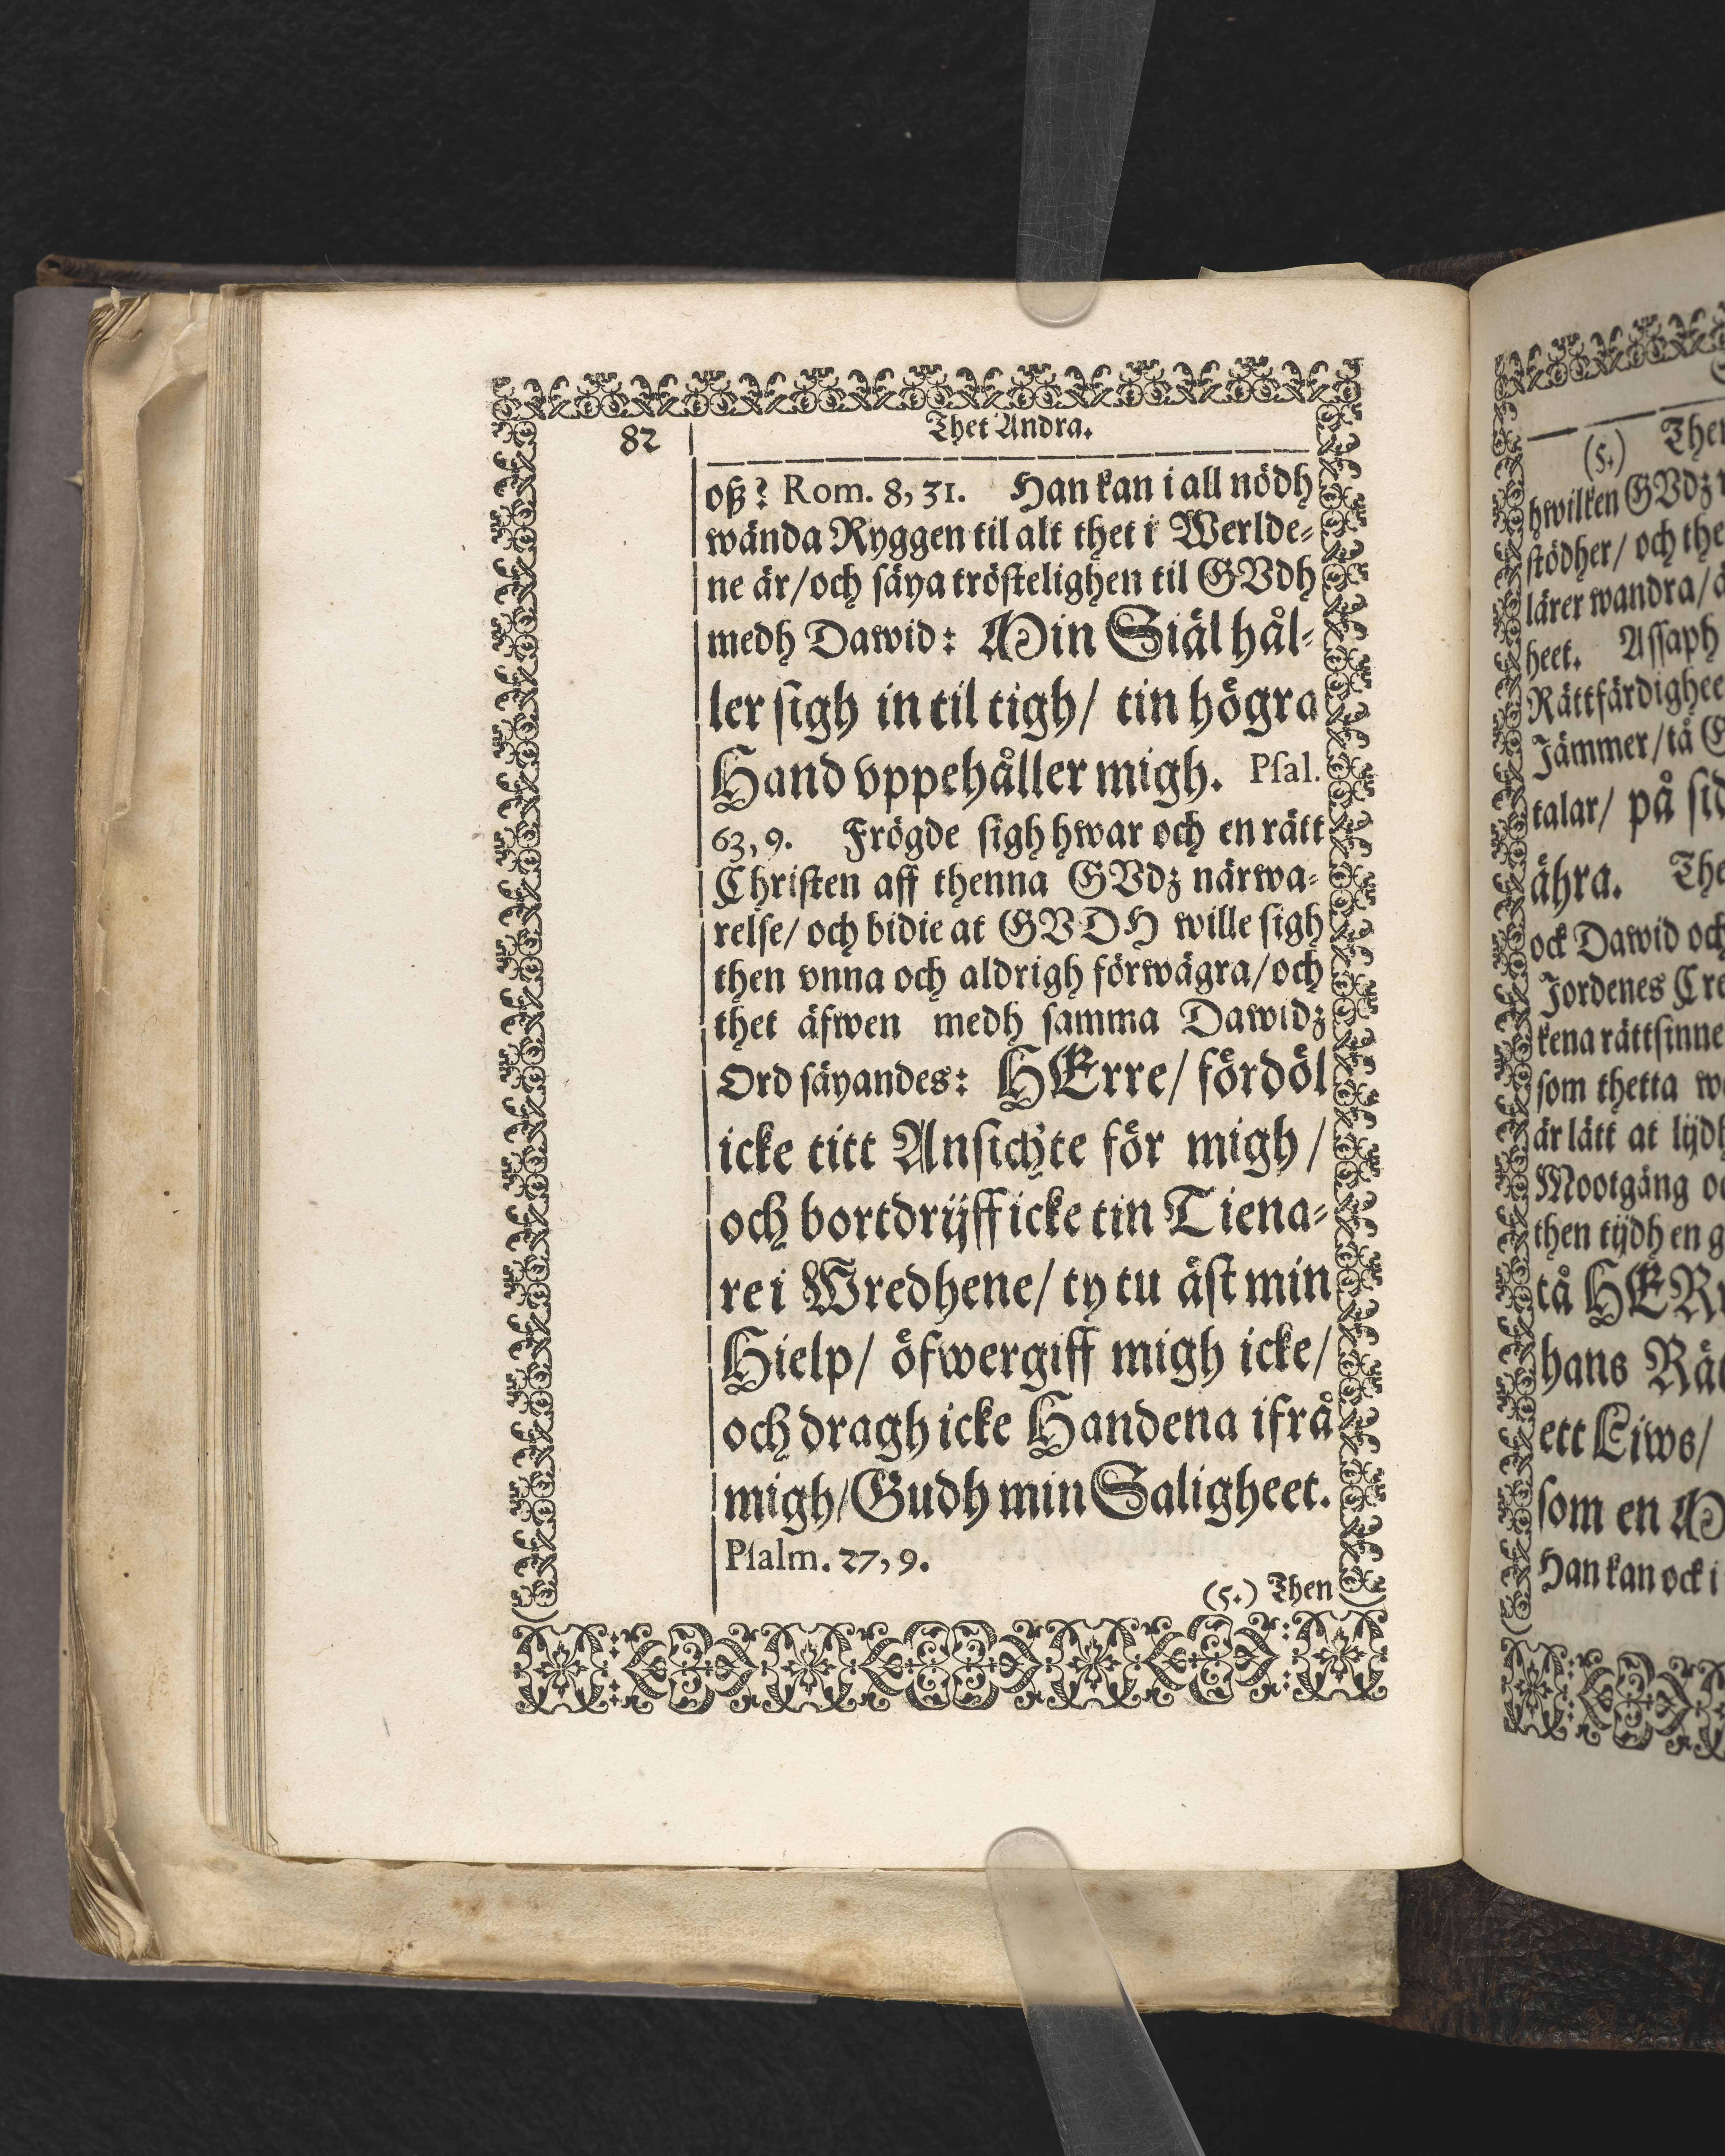 82
Thet Andra.
oß? Rom. 8, 31. Han kan i all nödh
wända Ryggen til alt thet i Werlde-
ne är/och säya tröstelighen til GVdh
medh Dawid: Min Siäl hål-
ler sigh in til tigh/ tin högra
Hand vppehåller migh. Psal.
63, 9. Frögde sigh hwar och en rätt
Christen aff thenna GVdz närwa-
relse/ och bidie at GVDH wille sigh
then vnna och aldrigh förwägra/och
thet äfwen medh samma Dawidz
Ord säyandes: HErre/ fördöl
icke titt Ansichte för migh/
och bortdrijff icke tin Tiena-
re i Wredhene/ ty tu äst min
Hielp/ öfwergiff migh icke/
och dragh icke Handena ifrå
migh/Gudh min Saligheet.
Psalm. 27, 9.
(5.) Then
(5.) Then
hwilken GVdz
stödher/ och the
lärer wandra/
heet. Assaph
Rättfärdighee
Jämmer/tå
talar/ på
ähra. The
ock Dawid och
Jordenes Cre
kena rättsinne
som thetta
är lätt at lijdh
Mootgång
then tijdh en
tå HERr
hans
ett Liws/
som en
Han kan ock i